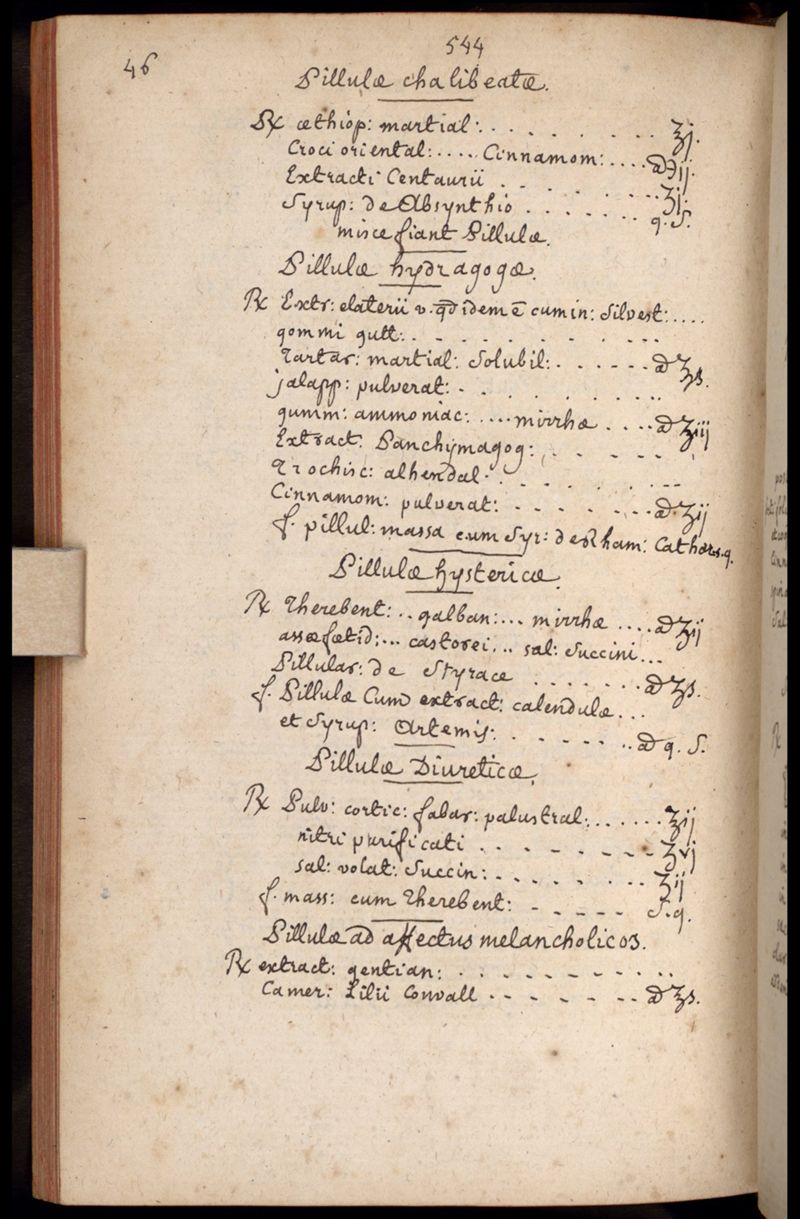 46
544
Pillulæ chalibeatæ.
℞ æthiop: martial: . . . . . . . . . ʒj.
Croci oriental: .... Cinnamom: .... ā ℈ij.
Extracti Centaurii . . . . . . . . ʒj.
Syrup: de Absynthio . . . . . . . q. S.
misce fiant Pillulæ.
Pillulæ hydragogæ.
℞ Extr: elaterii v. qd idem ē cumin: Silvest: ....
gommi gutt: . . . . . . . . . .
Tartar: martial: Solubil: . . . . . . ā ʒs.
jalapp: pulverat: . . . . . . . . .
gumm: ammoniac: .... mirrhæ .... ā ʒiij
Extract: Panchymagog: . . . . . .
Trochisc: alhendal: . . . . . . .
Cinnamom: pulverat: . . . . . . . ā. ʒij
f. pillul: massa cum Syr: de Rham: Cathar. s. q.
Pillulæ hystericæ.
℞ Therebent: .. galban: ... mirrhæ .... ā ʒij
assæfœtid: ... castorei ... sal: Succini ...
Pillular: de Styrace . . . . . . . ā ʒs.
f. Pillulæ Cum extract: calendulæ ...
et Syrup: Artemis: . . . . . . .. ā q. S.
Pillulæ Diureticæ.
℞ Pulv: cortic: fabar: palustral: ...... ʒij
nitri purificati . . . . . . . . ʒvj
sal: volat: Succin: . . . . . . . . ʒij
f. mass: cum Therebent: . . . . . S. q.
Pillulæ ad affectus melancholicos.
℞ extract: gentian: . . . . . . . . . .
Camer: Lilii Convall . . . . . . .. ā ʒs.